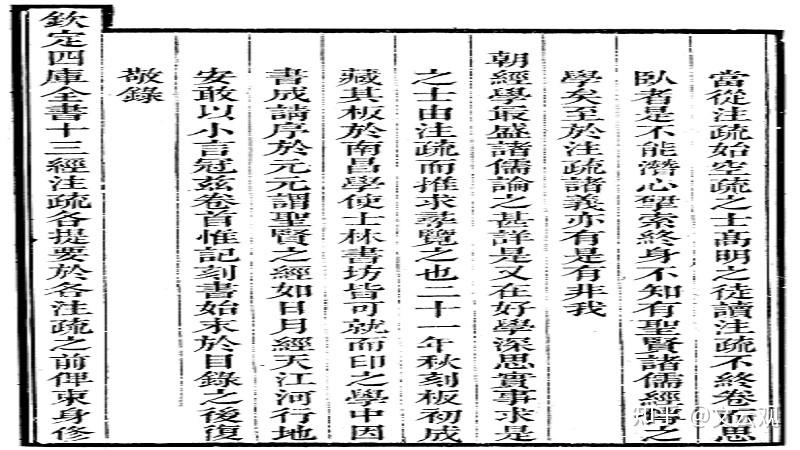 當從注疏始空疏之士高明之徒讀注疏不終卷而思
臥者是不能潛心揅索終身不知有聖賢諸儒經傳之
學矣至於注疏諸義亦有是有非我
朝經學最盛諸儒論之甚詳是又在好學深思實事求是
之士由注疏而推求尋覽之也二十一年秋刻板初成
藏其板於南昌學使士林書坊皆可就而印之學中因
書成請序於元元謂聖賢之經如日月經天江河行地
安敢以小言冠茲卷首惟記刻書始末於目錄之後復
敬錄
欽定四庫全書十三經注疏各提要於各注疏之前俾束身修
知乎 @文云观